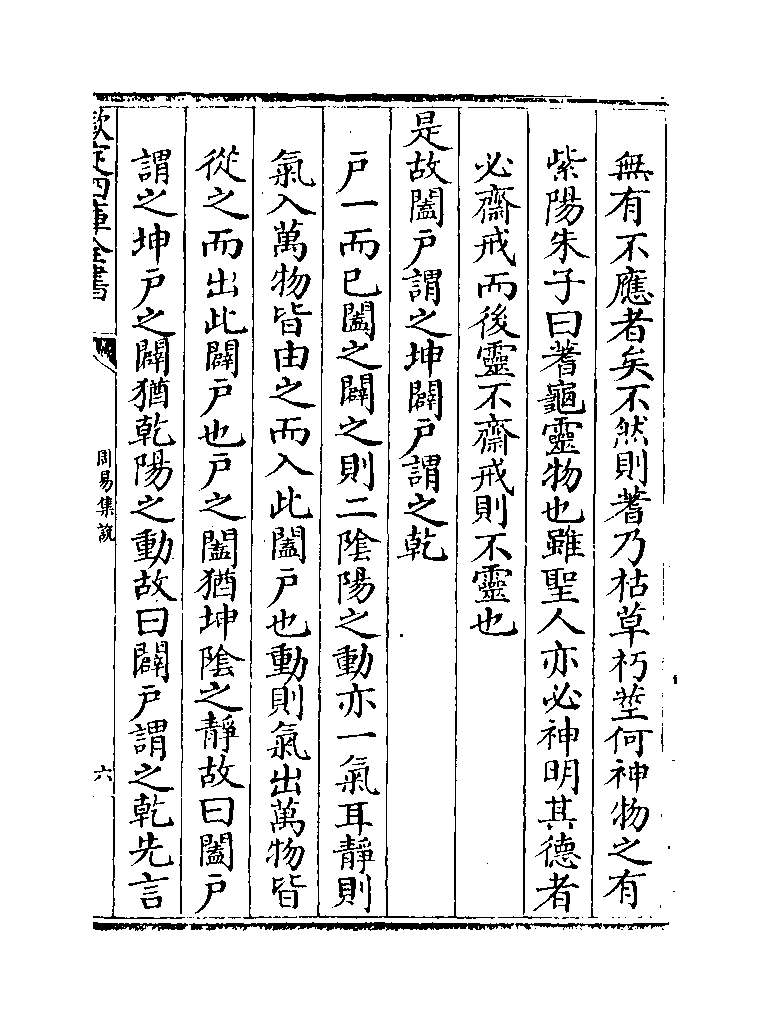 無有不應者矣不然則蓍乃枯草朽莖何神物之有
紫陽朱子曰蓍龜靈物也雖聖人亦必神明其德者
必齋戒而後靈不齋戒則不靈也
是故闔戸謂之坤闢戸謂之乾
戸一而已闔之闢之則二陰陽之動亦一氣耳靜則
氣入萬物皆由之而入此闔戸也動則氣出萬物皆
從之而出此闢戸也戸之闔猶坤陰之靜故曰闔戸
謂之坤戸之闢猶乾陽之動故曰闢戸謂之乾先言
欽定四庫全書
周易集說
六